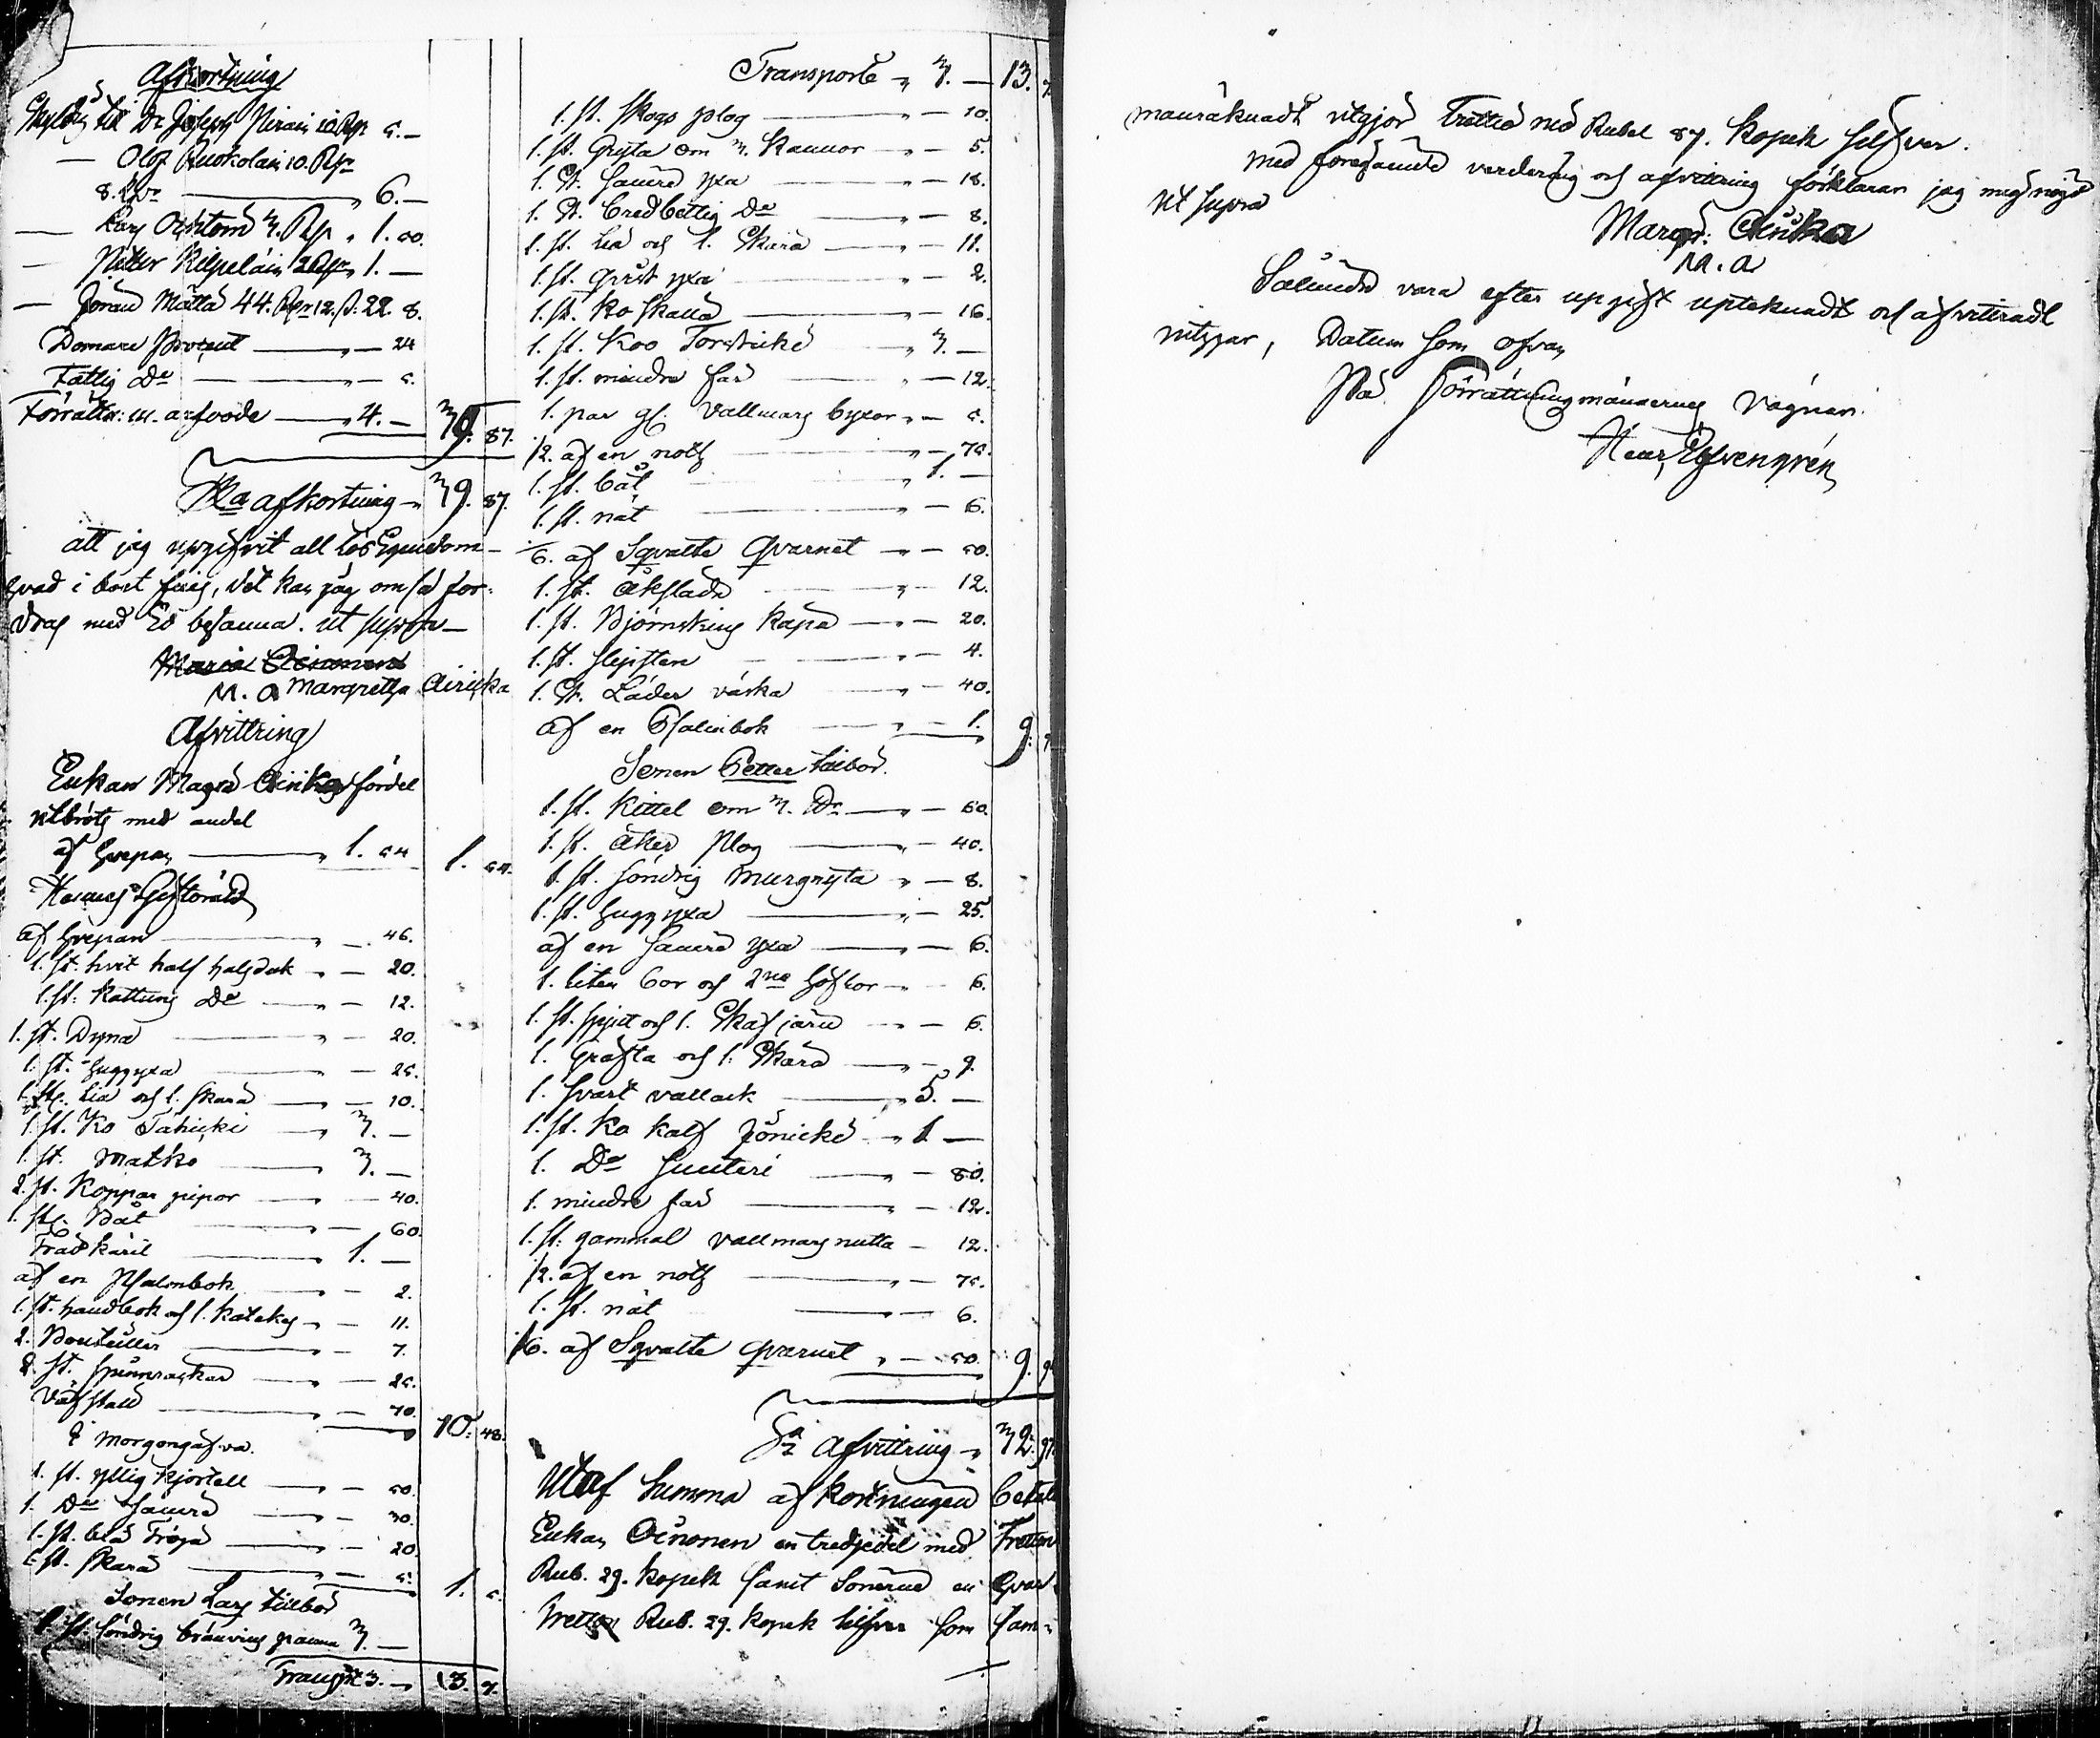 Afkortning
Skyldig til Dr Joseph 10 Rpr 5. —
— Olof Ruokolain 10. Rpr
8. 6. —
— Lars 3. Rp „ 1. 50.
— Petter Kilpeläin 2 Rpr „ 1. —
— Göran Mättä 44. Rpr 12. s: 22. 8.
Domare Procent „ — 24
Fattig Do „ — 5.
Förrättn: m. arfvode „ 4. — 39. 87.
Sa afkortning „ 39. 87.
att jag upgifvit all lös Egendom
hvad i boet fins, det kan jag om så for-
dras med Ed besanna. ut supra —
Maria Oinonen
M. A Margretha Airicka
Afvittring
Enkan Magrd Airikas fördel
utbröts med andel
af hvepan „ 1. 54 1. 54.
Hennes Giftorätt
af hvepan „ — 46.
1. st. hvit half halsduk „ — 20.
1. st: Kattuns Do „ — 12.
1. st. Dyna „ — 20.
1. st. huggyxa „ — 25.
1. st. Lia och 1. skära „ — 10.
1. st. Ko Tahicki „ 3. —
1. st. Matko „ 3. —
2. st. Koppar pipor „ — 40.
1. st. Båt „ — 60.
Trädkäril „ 1. —
af en Psalmbok „ — 2.
1. st. handbok och 1. katekes „ — 11.
2. Bouteiller „ — 7.
2. st. spinnrockar „ — 25.
Väfstall „ — 10. 10. 48.
I Morgongåfva.
1. st. yllig kjortell „ — 50.
1. Do Samre „ — 30.
1. st. blå Tröja „ — 20.
1. st. skära „ — 5. 1. 5.
Sonen Lars tillbör
1. st. söndrig bränvins panna 3. —
Transpt 3. „ 13. 7.
Transporte „ 3. — 13. 7
1. st. skogs plog „ — 10.
1. st. Gryta om 3. kannor „ — 5.
1. st. Samre yxa „ — 18.
1. st. bredbettig Do „ — 8.
1. st. Lia och 1. skära „ — 11.
1. st. yxa „ — 2.
1. st. Ko skälla „ — 16.
1. st. Koo Torsticke „ 3. —
1. st. mindre får „ — 12.
1. par gl. vallmars byxor „ — 5.
1/2. af en noth „ — 75.
1. st. båt „ 1. —
1. st. nät „ — 6.
1/6. af Sqvalte Qvarnet „ — 50.
1. st. åkslade „ — 12.
1. st. Björnskins kapa „ — 20.
1. st. slipsten „ — 4.
1. st. Läder väska „ — 40.
af en Psalmbok „ — 1. 9:
Sonen Petter tillbör.
1. st. kittel om 3. Do „ — 60.
1. st. åker plog „ — 40.
1. st. söndrig murgryta „ — 8.
1. st. huggyxa „ — 25.
af en samre yxa „ — 6.
1. liten bor och 2ne „ — 6.
1. st. spjut och 1. skafjärn „ — 6.
1. Gräfta och 1. skära „ — 9.
1. svart vallack „ 5. —
1. st. ko kalf Jönicke „ 1 —
1. Do „ — 80.
1. mindre får „ — 12.
1. st: gammal vallmars mutta — 12.
1/2. af en noth „ — 75.
1. st. nät „ — 6.
1/6. af Sqvalte qvarnet „ — 50. 9. 9
Sa Afvittring „ 32. 97.
Utaf Summa afkortningen betal
Enkan Oinonen en tredjedel med Tretton
Rub. 29. kopek samt Sönerne en hvar
tretton Rub. 29. kopek silfver som sam-
manräknadt utgjör Trettio nio Rubel 87. kopek silfver.
Med foregående värdering och afvittring förklarar jag mig nögd
ut supra
Margr: Airika
M. A
Sålunda vara efter upgift uptecknadt och afvittradt
vitgar, Datum som ofvan
På Förrättningsmännernes Vägnar.
Henr. Elfvengrén